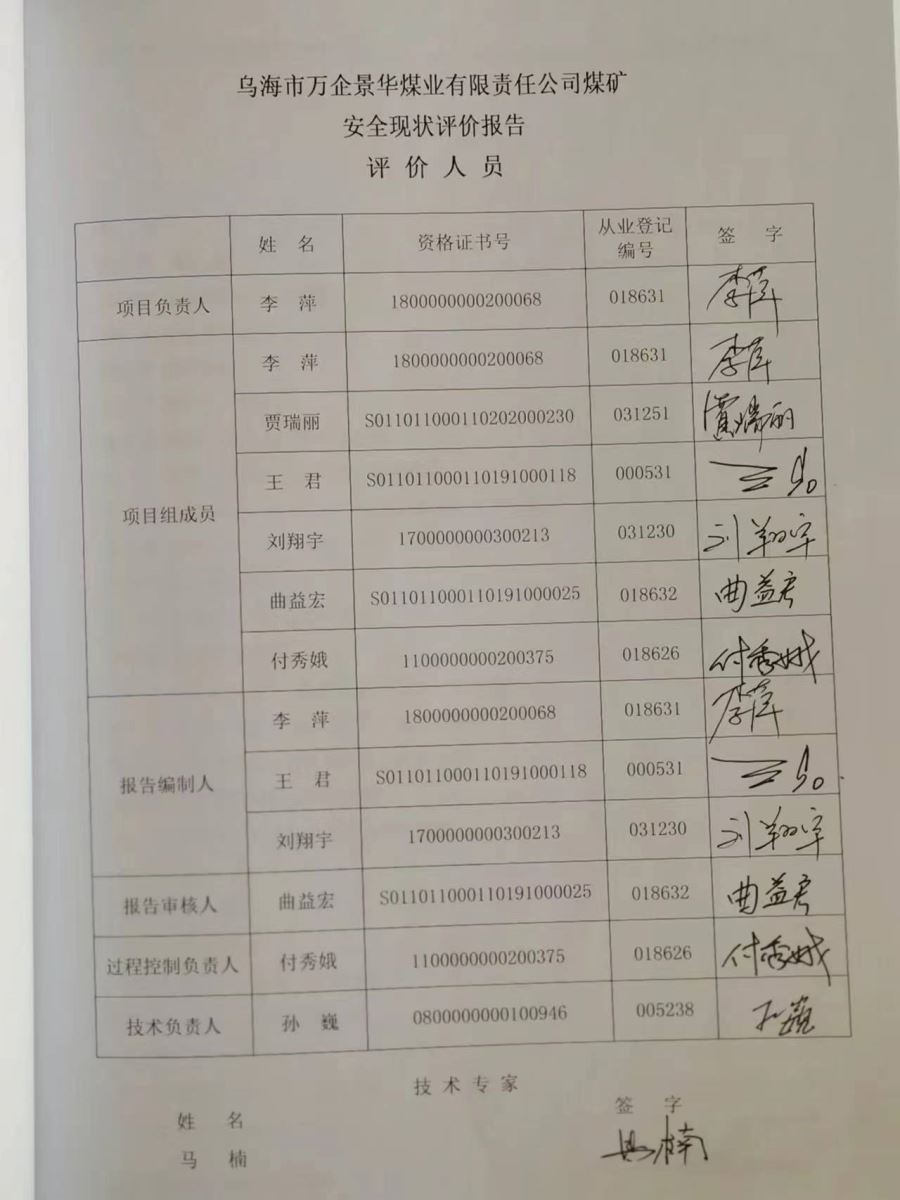 乌海市万企景华煤业有限责任公司煤矿
安全现状评价报告
评 价 人 员
姓 名 资格证书号 从业登记编号 签 字
项目负责人 李 萍 1800000000200068 018631 李萍
项目组成员 李 萍 1800000000200068 018631 李萍
贾瑞丽 S011011000110202000230 031251 贾瑞丽
王 君 S011011000110191000118 000531 王君
刘翔宇 1700000000300213 031230 刘翔宇
曲益宏 S011011000110191000025 018632 曲益宏
付秀娥 1100000000200375 018626 付秀娥
报告编制人 李 萍 1800000000200068 018631 李萍
王 君 S011011000110191000118 000531 王君
刘翔宇 1700000000300213 031230 刘翔宇
报告审核人 曲益宏 S011011000110191000025 018632 曲益宏
过程控制负责人 付秀娥 1100000000200375 018626 付秀娥
技术负责人 孙 巍 0800000000100946 005238 孙巍
技 术 专 家
姓 名 签 字
马 楠 马楠